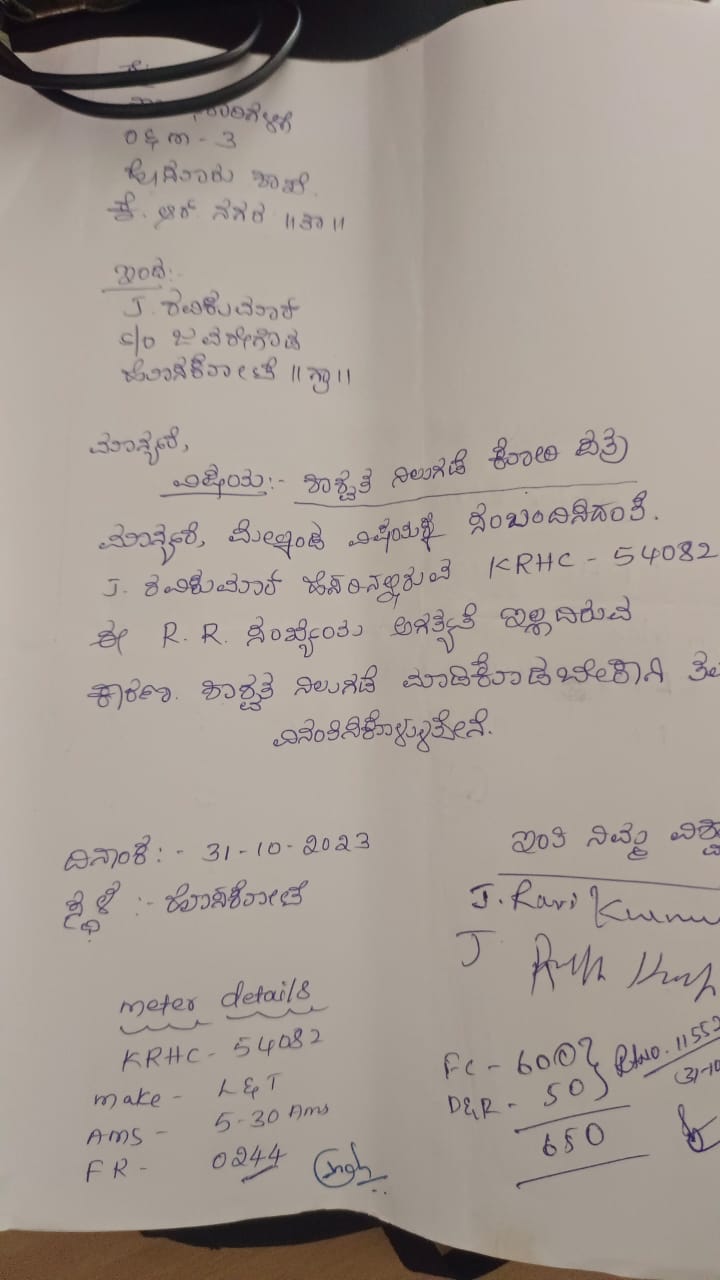 ಓ & ಎಂ - 3
ಶಾಖೆ.
ಕೆ. ಆರ್ ನಗರ ||ತಾ||
ಇಂದ:-
J. ರವಿಕುಮಾರ್
c/o ಜವರೇಗೌಡ
ಹೊಸಕೋಟೆ ||ಗ್ರಾ||
ಮಾನ್ಯರೆ,
ವಿಷಯ:- ಶಾಶ್ವತ ನಿಲುಗಡೆ ಕೋರಿ ಪತ್ರ
ಮಾನ್ಯರೆ, ಮೇಲ್ಕಂಡ ವಿಷಯಕ್ಕೆ ಸಂಬಂದಿಸಿದಂತೆ.
J. ರವಿಕುಮಾರ್ ಹೆಸರಿನಲ್ಲಿರುವ KRHC - 54082
ಈ R. R. ಸಂಖ್ಯೆಯು ಅಗತ್ಯತೆ ಇಲ್ಲದಿರುವ
ಕಾರಣ. ಶಾಶ್ವತ ನಿಲುಗಡೆ ಮಾಡಿಕೊಡಬೇಕಾಗಿ
ವಿನಂತಿಸಿಕೊಳ್ಳುತ್ತೇನೆ.
ದಿನಾಂಕ:- 31-10-2023
ಸ್ಥಳ :- ಹೊಸಕೋಟೆ
ಇಂತಿ ನಿಮ್ಮ
J. Ravi Kumar
J
meter details
KRHC - 54082
make - L&T
AMS - 5-30 Ams
FR - 0244
FC - 600
D&R - 50
650
Rt.No. 11552
(31-10